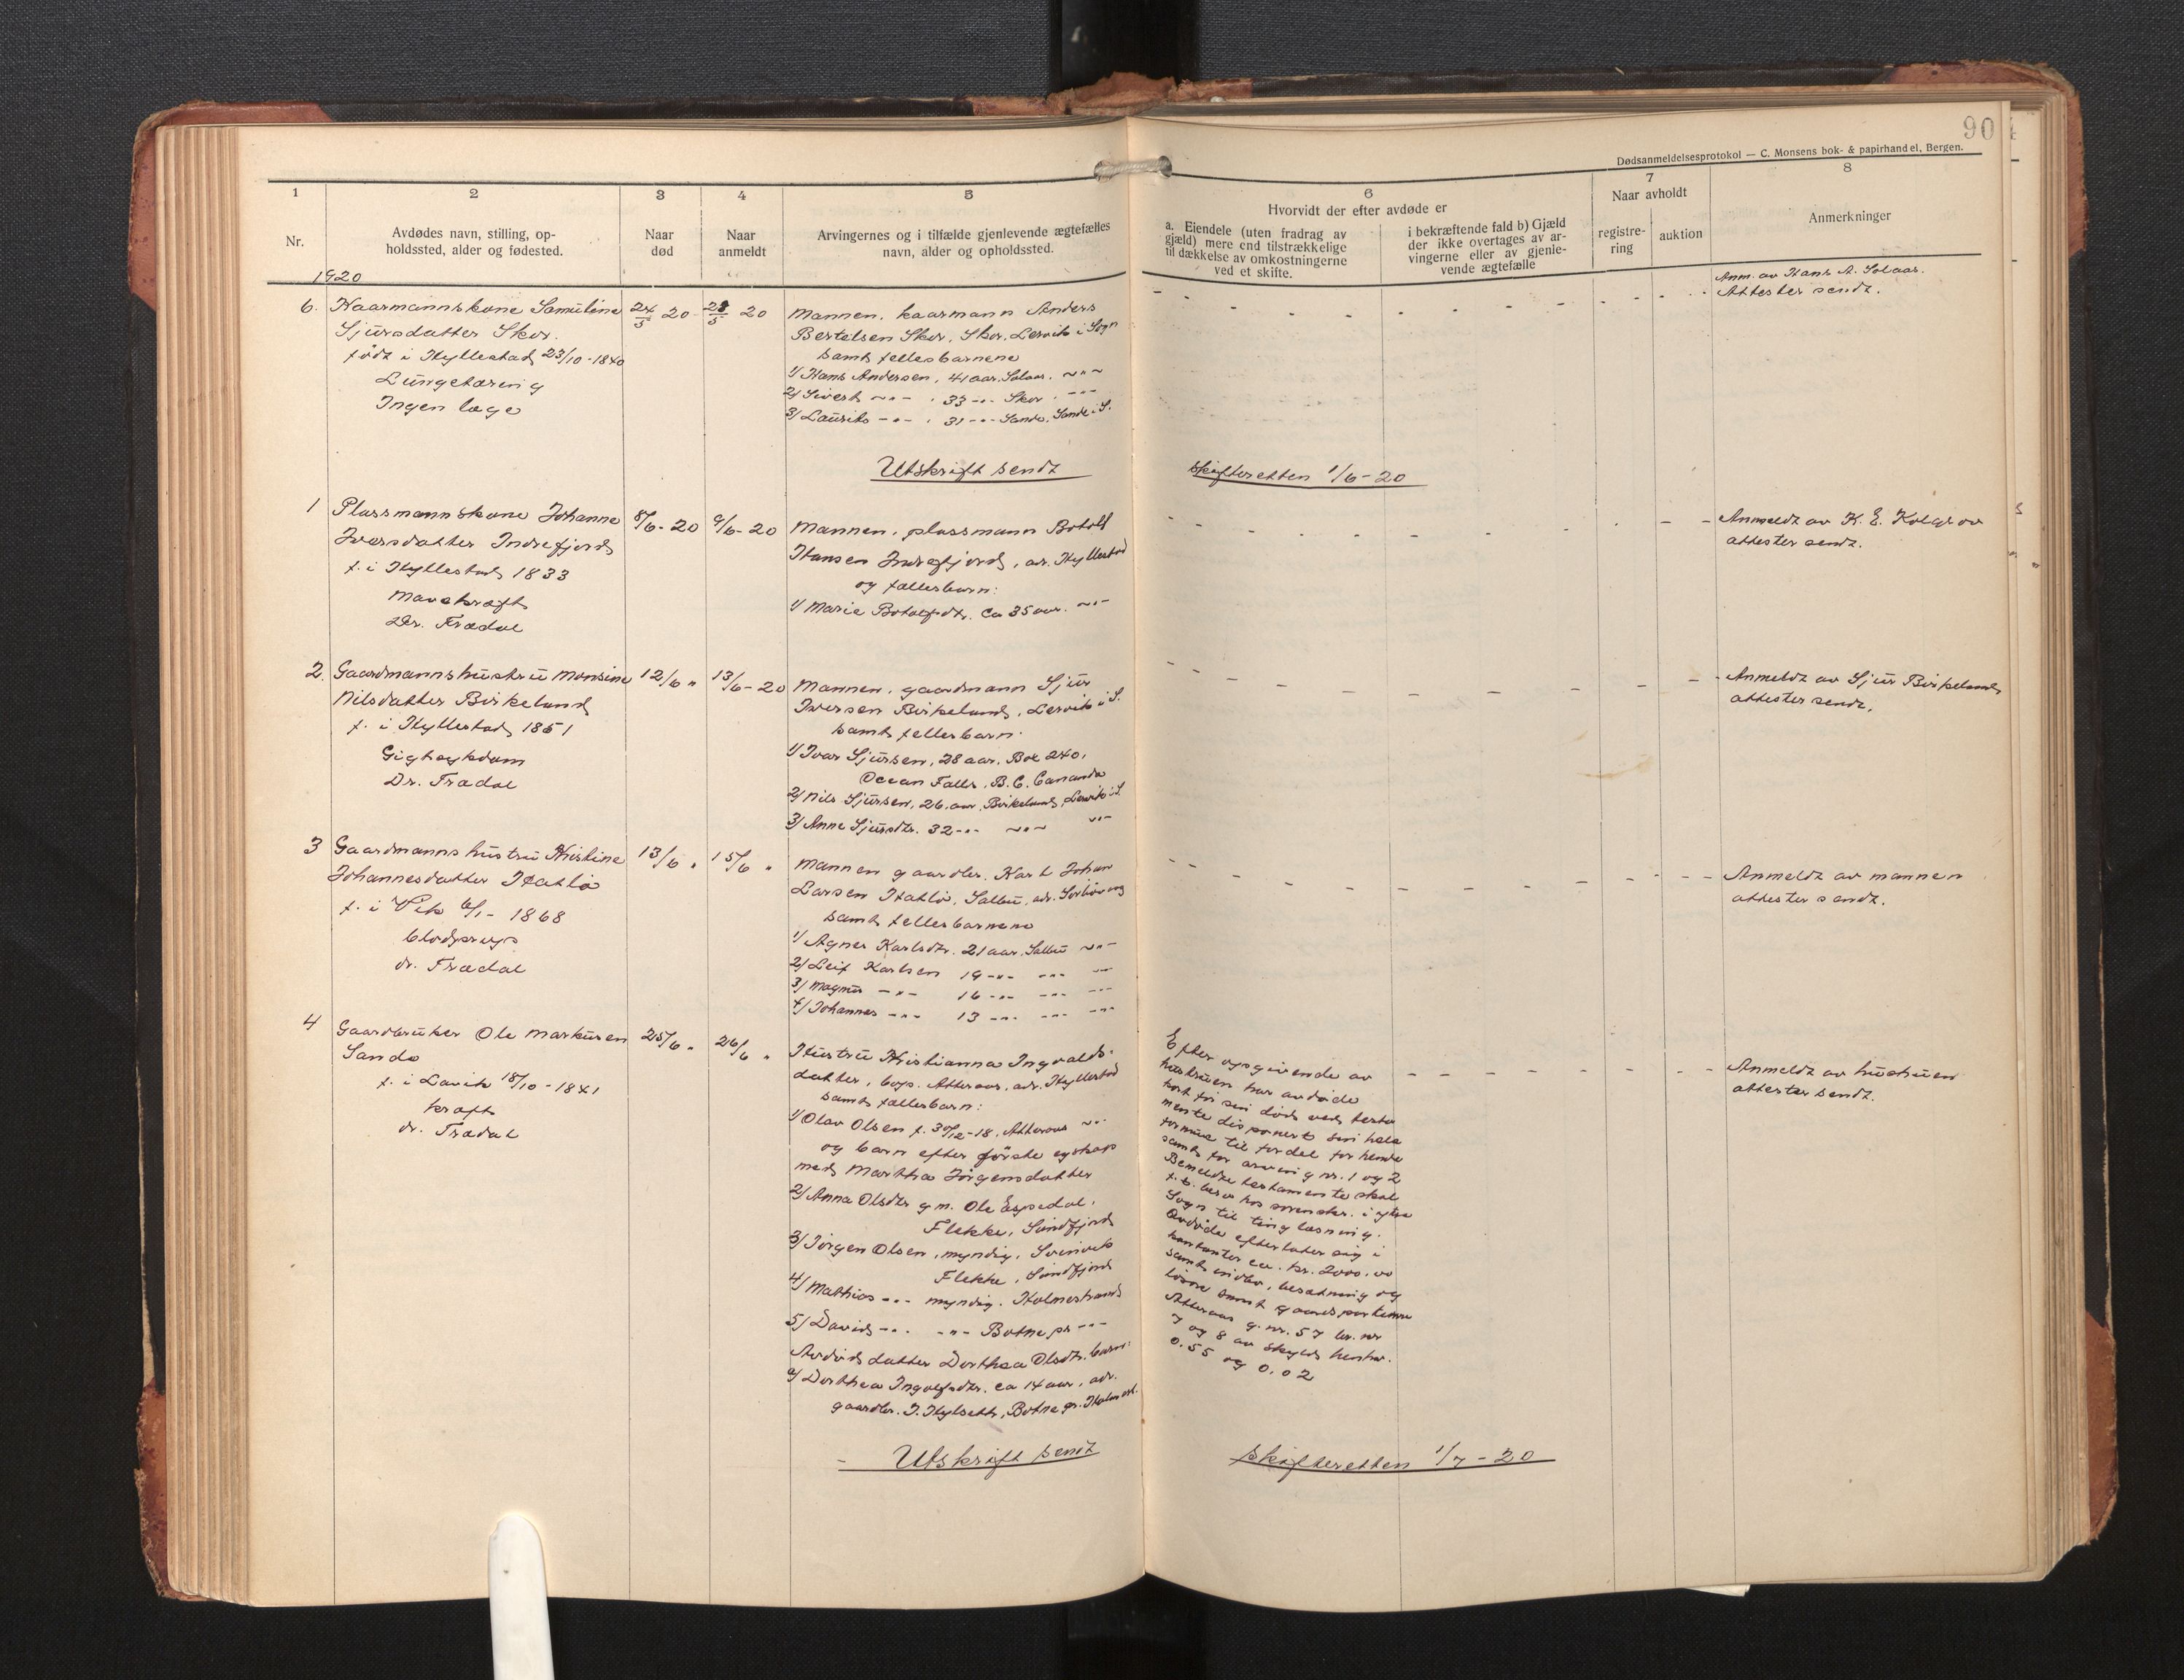 90
Dødsanmeldelsesprotokol — C. Monsens bok- & papirhandel, Bergen.
1 2 3 4 5 6 7 8
Nr.
Avdødes navn, stilling, op-
holdssted, alder og fødested.
Naar
død
Naar
anmeldt
Arvingernes og i tilfælde gjenlevende ægtefælles
navn, alder og opholdssted.
Hvorvidt der efter avdøde er
a. Eiendele (uten fradrag av
gjæld) mere end tilstrækkelige
til dækkelse av omkostningerne
ved et skifte.
i bekræftende fald b) Gjæld
der ikke overtages av ar-
vingerne eller av gjenle-
vende ægtefælle
Naar avholdt
registre-
ring
auktion
Anmerkninger
1920
6. Kaarmannskone Samuline
Sjursdatter Skor.
født i Hyllestad 23/10-1840
Lungetæring
Ingen læge
24/5 20
28/5 20
Mannen, kaarmann Anders
Bertelsen Skor, Skor, Lervik i Sogn
samt fellesbarnene
1/ Hans Andersen, 41 aar, Solaar. -"-
2/ Sivert -"- 33 -"- Skor. -"-
3/ Laurits -"- 31 -"- Sande, Sande i S.
Anm. av Hans A. Solaar.
Attester sendt.
Utskrift sendt skifteretten 1/6-20
1 Plassmannskone Johanne
Iversdatter Indrefjord
f. i Hyllestad 1833
Mavekræft
Dr. Trædal
8/6-20
9/6-20
Mannen, plassmann Botolf
Hansen Indrefjord, adr. Hyllestad
og fellesbarn:
1/ Marie Botolfsdtr. ca 35 aar. -"-
Anmeldt av K. E. Kolgrov
attester sendt.
2. Gaardmannshustru Monsine
Nilsdatter Birkeland
f. i Hyllestad 1851
Gigtsykdom
Dr. Trædal
12/6 "
13/6-20
Mannen, gaardmann Sjur
Iversen Birkeland, Lervik i S.
samt fellesbarn:
1/ Ivar Sjursen, 28 aar, Box 240,
Ocean Falls, B. C. Cananda
2/ Nils Sjursen, 26 aar, Birkeland, Lervik i S.
3/ Anne Sjursdtr. 32 -"- -"- -"-
Anmeldt av Sjur Birkeland
attester sendt.
3 Gaardmannshustru Kristine
Johannesdatter Hatlø
f. i Vik 6/1-1868
blodprop
dr. Trædal
13/6 "
15/6 "
Mannen gaardbr. Karl Johan
Larsen Hatlø, Salbu, adr. Sørbøvaag
samt fellesbarnene
1/ Agnes Karlsdtr. 21 aar, Salbu -"-
2/ Leif Karlsen 19 -"- -"- -"-
3/ Magnus -"- 16 -"- -"- -"-
4/ Johannes -"- 13 -"- -"- -"-
Anmeldt av mannen
attester sendt.
4 Gaardbruker Ole Markusen
Sande
f. i Lavik 18/10-1841
kræft
dr. Trædal
25/6 "
26/6 "
Hustru Kristianna Ingvalds-
datter, bops. Atteraas, adr. Hyllestad
samt fællesbarn:
1/ Olav Olsen f. 30/12-18, Atteraas -"-
og barn efter første egskap
med Martha Jørgensdatter
2/ Anna Olsdtr g.m. Ole Espedal,
Flekke, Sundfjord
3/ Jørgen Olsen, myndig, Svinevik
Flekke, Sundfjord
4/ Mathias -"- myndig. Holmestrand
5/ David -"- -"- Botne pr -"-
Avdød datter Dorthea Olsdtr. barn:
a/ Dorthea Ingolfsdtr. ca 14 aar, adr.
gaardbr. J. Hylseth, Botne pr. Holmestr.
Efter opgivende av
hustruen har avdøde
kort før sin død ved testa
mente disponert sin hele
formue til fordel for hende
samt for arving nr. 1 og 2
Bemeldte testamente skal
f.t. bero hos sorenskr. i ytre
Sogn til ting læsning.
Avdøde efterlater sig i
kontanter ca. kr. 2000,00
samt indbo, besætning og
løsøre samt gaardsparterne
Atteraas g. nr. 57 br. nr
7 og 8 av skyld henhv.
0.55 og 0.02
Anmeldt av hustruen
attester sendt.
Utskrift sendt skifteretten 1/7-20